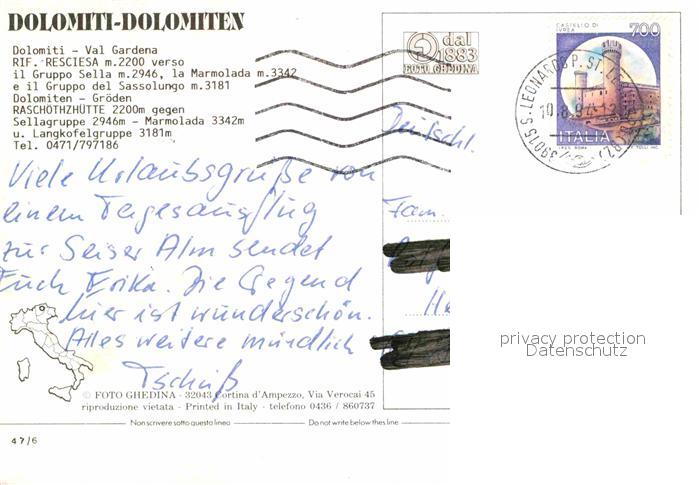 DOLOMITI-DOLOMITEN
Dolomiti - Val Gardena
RIF. RESCIESA m.2200 verso
il Gruppo Sella m.2946, la Marmolada m.3342
e il Gruppo del Sassolungo m.3181
Dolomiten - Gröden
RASCHÖTHZHÜTTE 2200m gegen
Sellagruppe 2946m - Marmolada 3342m
u. Langkofelgruppe 3181m
Tel. 0471/797186
dal
1883
FOTO GHEDINA
CASTELLO DI
IVREA
700
ITALIA
39015 S. LEONARDO P. ST. L
10.8.9
Deutschl.
Viele Urlaubsgrüße von
einem Tagesausflug
zur Seiser Alm sendet
Euch Erika. Die Gegend
hier ist wunderschön.
Alles weitere mündlich
Tschüß
Fam.
He
privacy protection
Datenschutz
© FOTO GHEDINA - 32043 Cortina d'Ampezzo, Via Verocai 45
riproduzione vietata - Printed in Italy - telefono 0436 / 860737
Non scrivere sotto questa linea
Do not write below this line
47/6